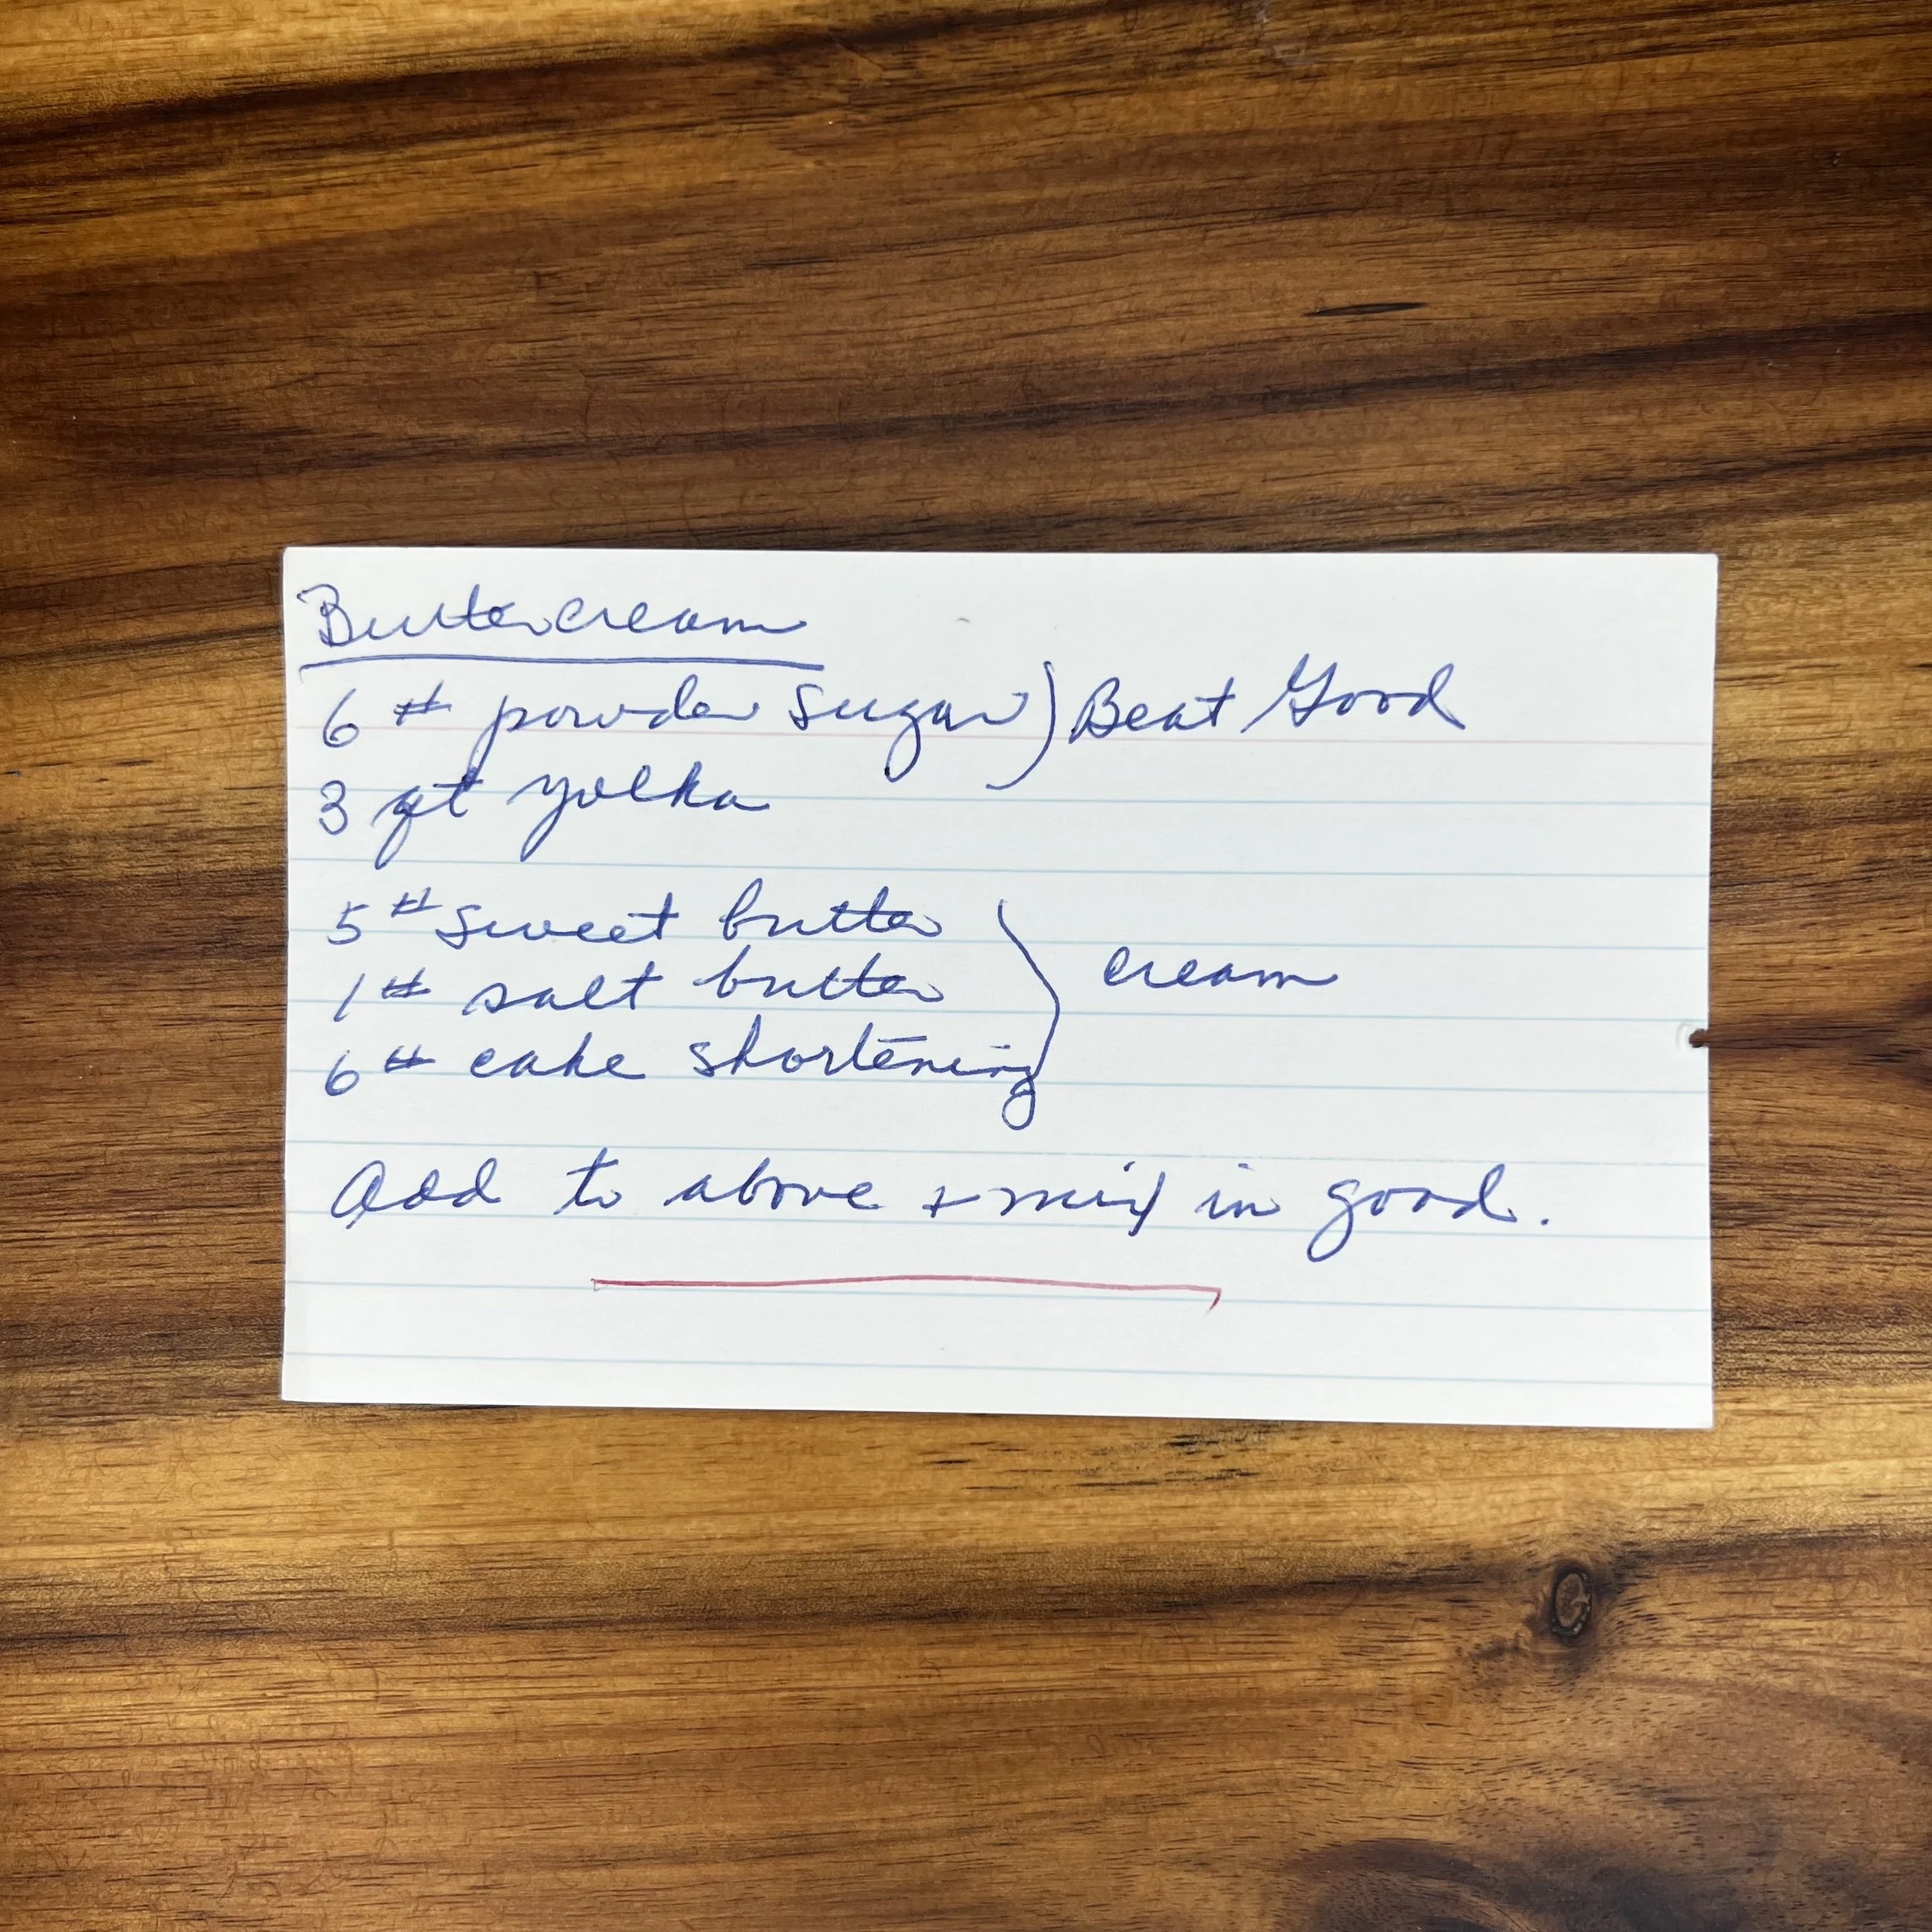 Buttercream
6 # powder sugar ) Beat Good
3 qt yolks
5 # sweet butter
1 # salt butter } cream
6 # cake shortening
Add to above + mix in good.